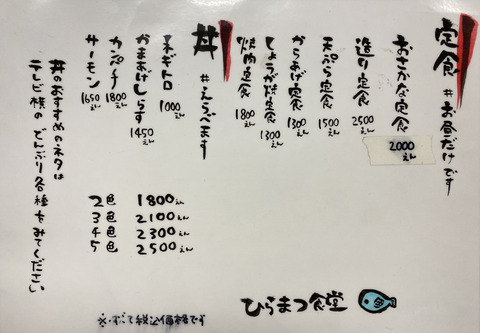 定食 #お昼だけです
おさかな定食 2000えん
造り定食 2500えん
天ぷら定食 1500えん
からあげ定食 1300えん
しょうが焼き定食 1300えん
焼肉定食 1800えん
丼 #えらべます
ネギトロ 1000えん
かまあげしらす 1450えん
カンパチ 1800えん
サーモン 1650えん
丼のおすすめのネタは
テレビ横の どんぶり各種をみてください
2色 1800えん
3色 2100えん
4色 2300えん
5色 2500えん
ひらまつ食堂
※すべて税込価格です